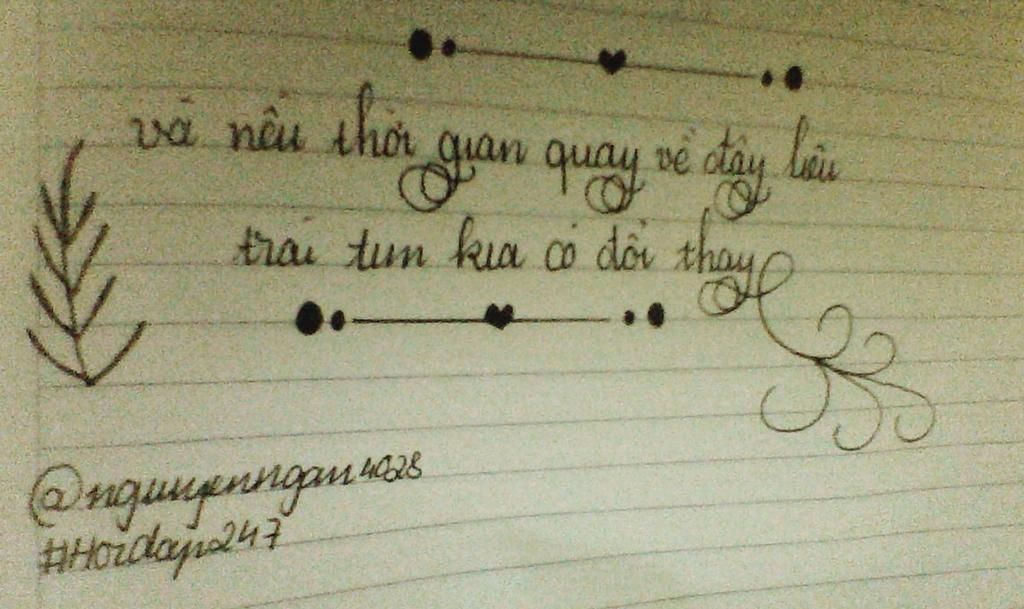 và nếu thời gian quay về đây liệu
trái tim kia có đổi thay
@nguyenngan4028
#Hoidap247